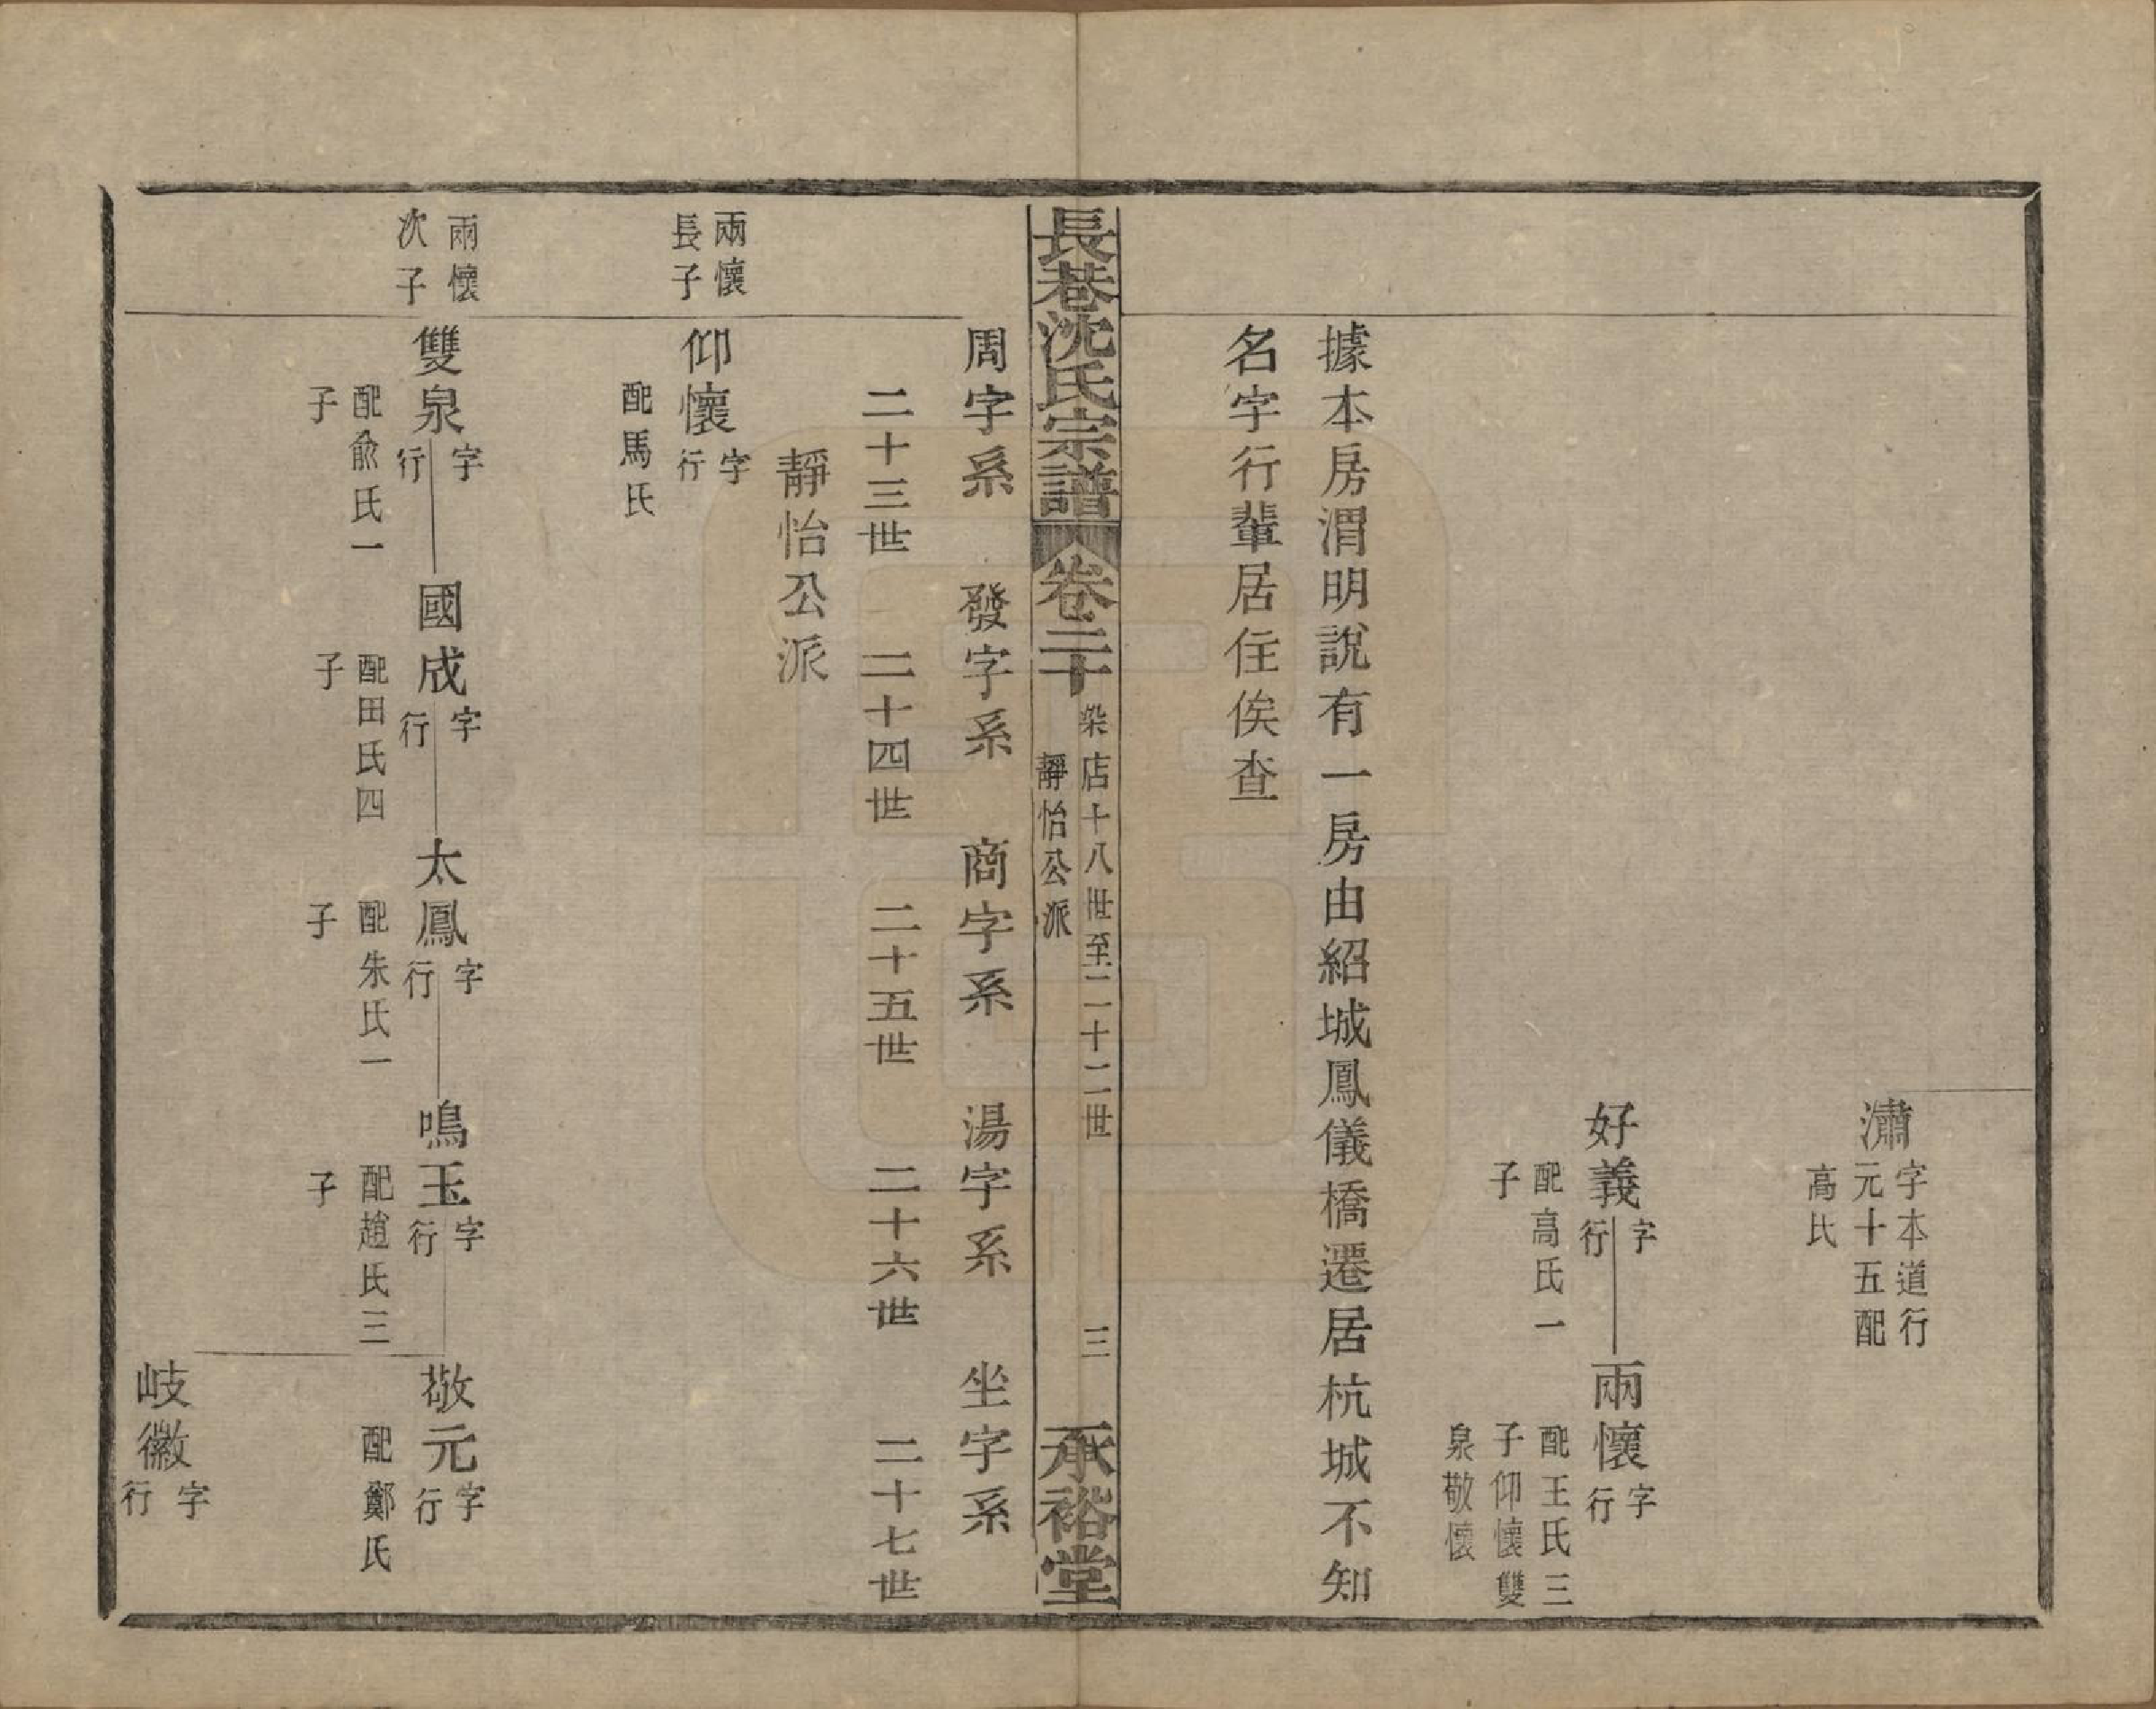 瀟
字本道行
元十五配
高氏
好義
字
行
配高氏一
子
兩懷
字
行
配王氏三
子仰懷雙
泉敬懷
據本房渭明說有一房由紹城鳳儀橋遷居杭城不知
名字行輩居住俟查
長巷沈氏宗譜 卷二十
染店十八世至二十二世
靜怡公派
三
承裕堂
周字系 發字系 商字系 湯字系 坐字系
二十三世 二十四世 二十五世 二十六世 二十七世
靜怡公派
兩懷
長子
仰懷
字
行
配馬氏
兩懷
次子
雙泉
字
行
配俞氏一
子
國成
字
行
配田氏四
子
太鳳
字
行
配朱氏一
子
鳴玉
字
行
配趙氏三
子
敬元
字
行
配鄭氏
岐徽
字
行